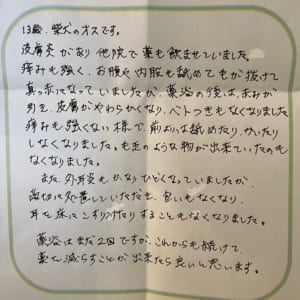 13歳、柴犬のオスです。
皮膚炎があり他院で薬も飲ませていました。
痒みも強く、お腹や内股も舐めて毛が抜けて
真っ赤になっていましたが、薬浴の後は、赤みが
引き、皮膚がやわらかくなり、ベトつきもなくなりました。
痒みも強くない様で、前よりは舐めたり、かいたり
しなくなりました。も近のような物が出来ていたのも
なくなりました。
また、外耳炎もかなりひどくなっていましたが、
適切に処置していただき、匂いもなくなり、
耳を床にこすりつけたりすることもなくなりました。
薬浴はまだ2回ですが、これからも続けて、
薬を減らすことが出来たら良いと思います。